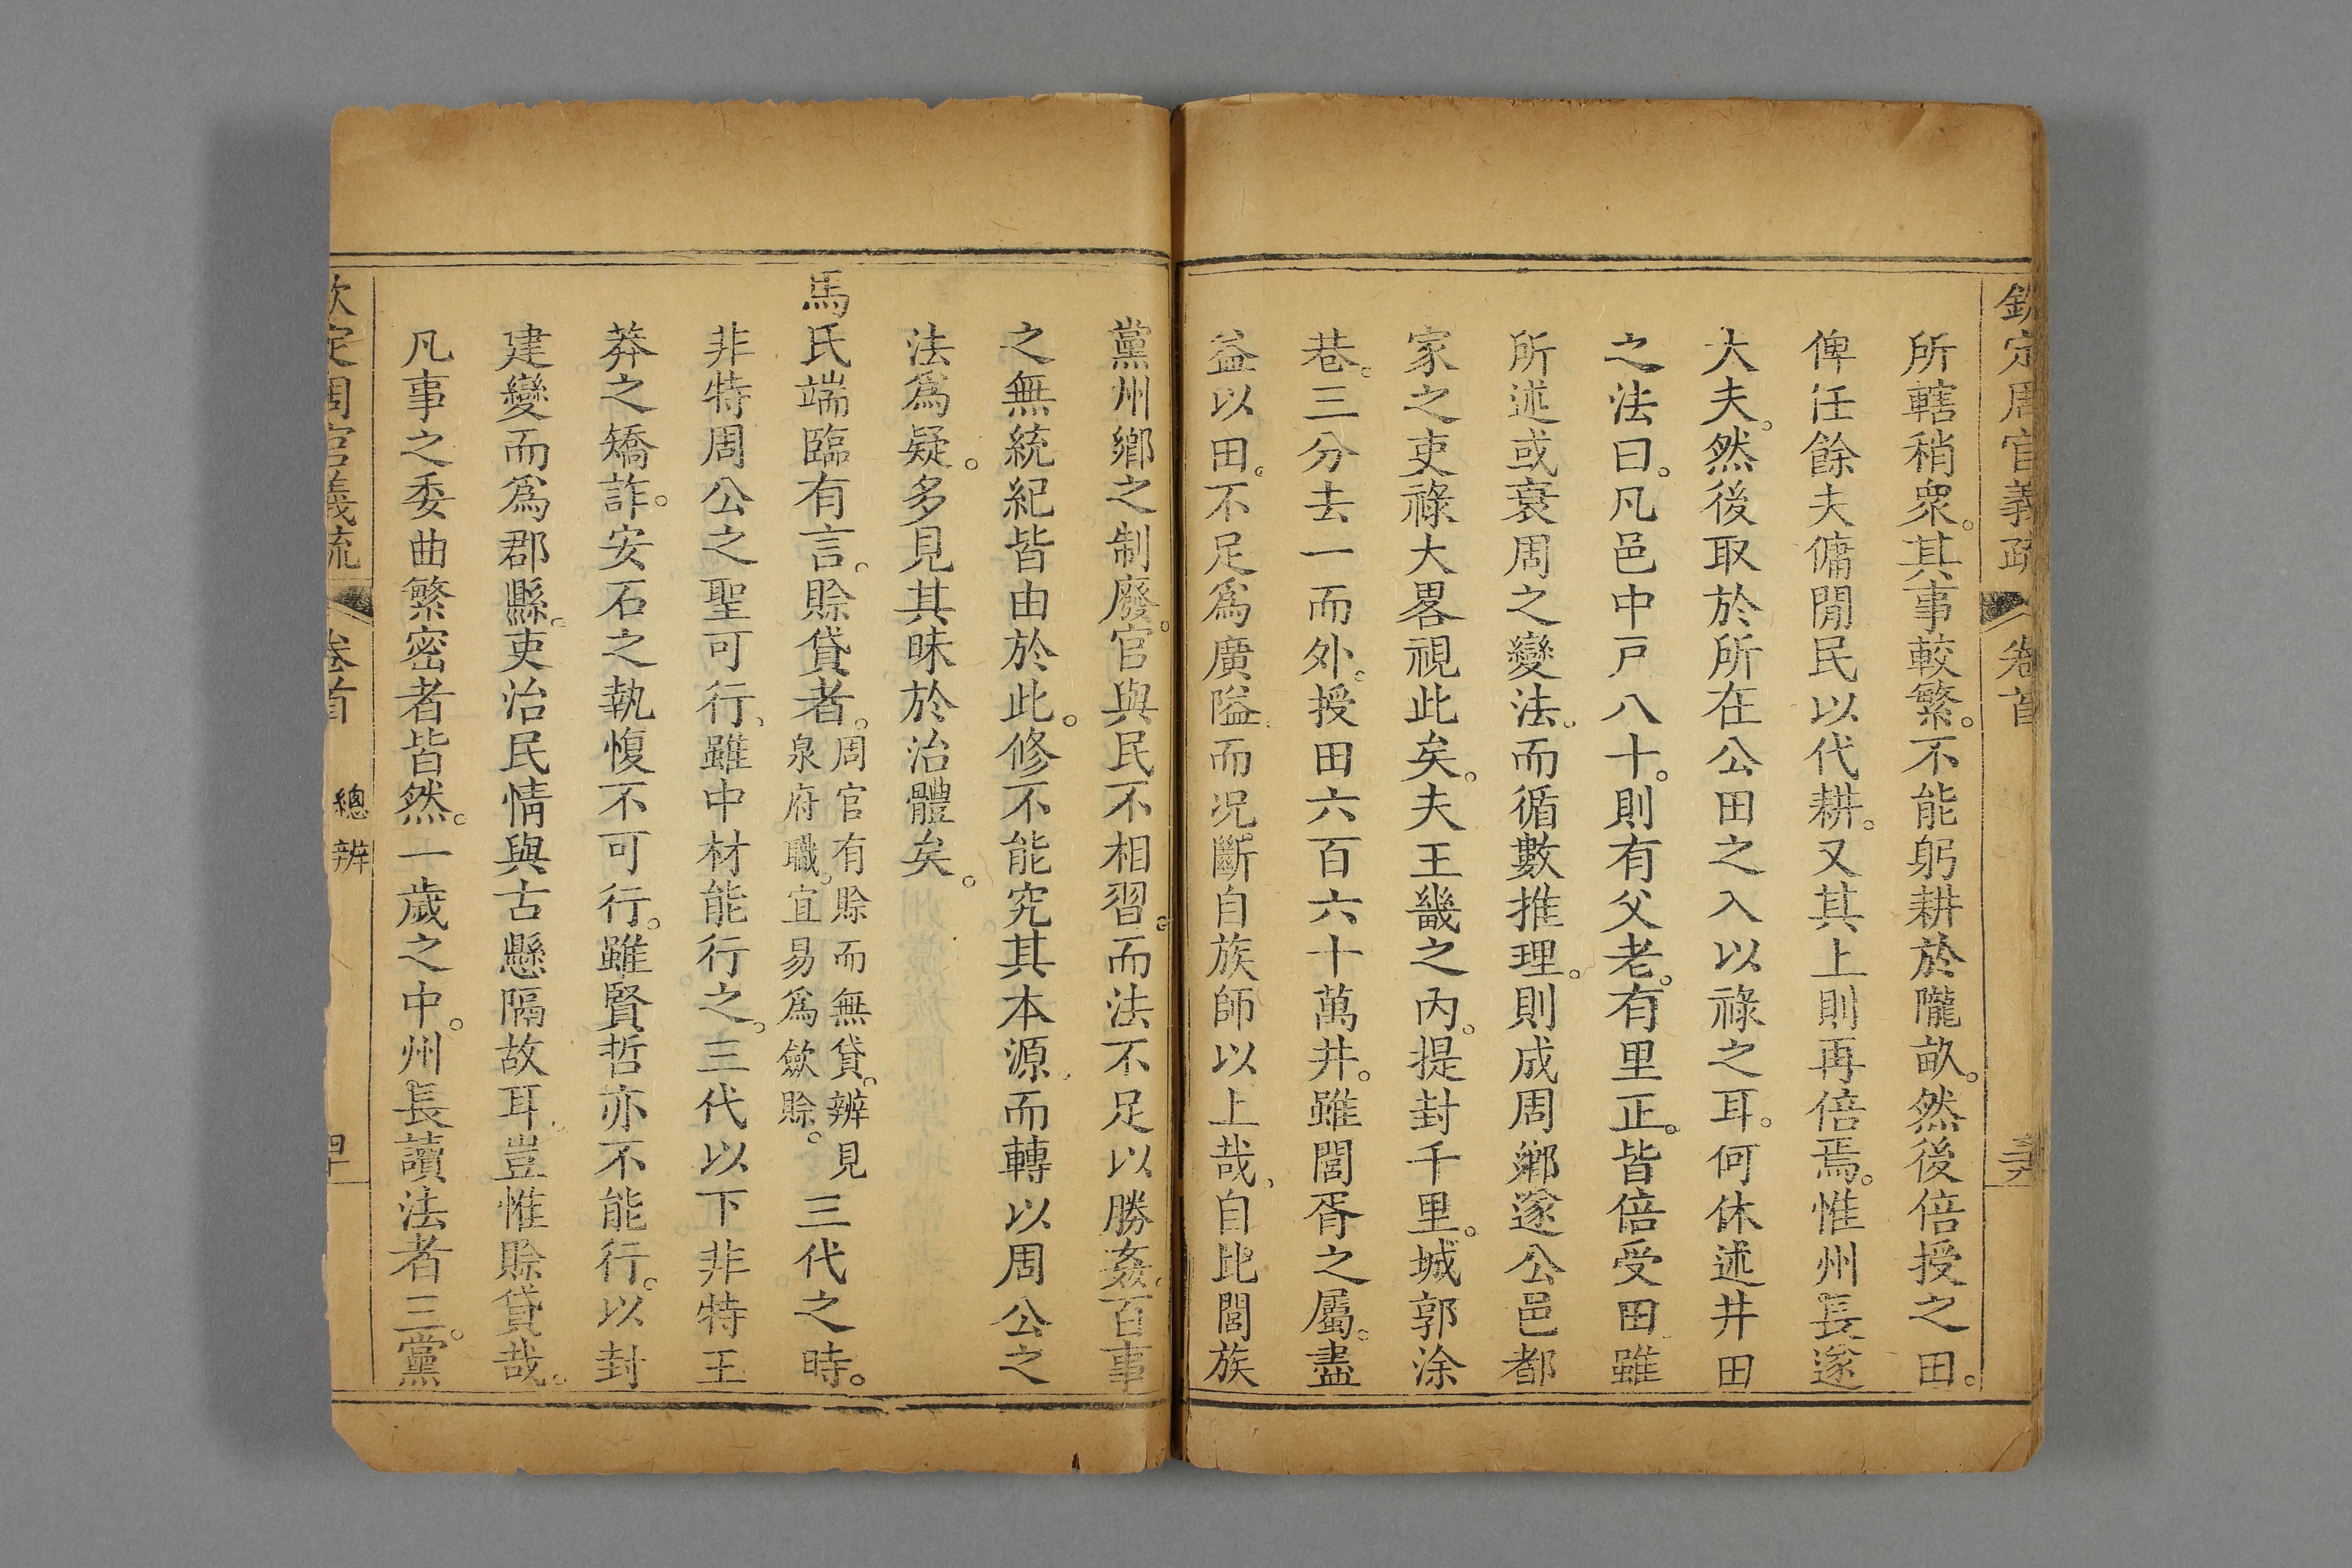 欽定周官義疏 卷首
所轄稍衆。其事較繁。不能躬耕於隴畝。然後倍授之田。
俾任餘夫傭閒民以代耕。又其上則再倍焉。惟州長遂
大夫。然後取於所在公田之入以祿之耳。何休述井田
之法曰。凡邑中戸八十。則有父老。有里正。皆倍受田。雖
所述或衰周之變法。而循數推理。則成周鄉遂公邑都
家之吏祿大畧視此矣。夫王畿之內。提封千里。城郭涂
巷。三分去一而外。授田六百六十萬井。雖閭胥之屬。盡
益以田。不足爲廣隘。而況斷自族師以上哉、自比閭族
黨州鄉之制廢。官與民不相習。而法不足以勝姦。百事
之無統紀皆由於此。修不能究其本源、而轉以周公之
法爲疑。多見其昧於治體矣。
馬氏端臨有言。賒貸者。周官有賒而無貸。辨見
泉府職。宜易爲斂賒。三代之時。
非特周公之聖可行、雖中材能行之。三代以下非特王
莽之矯詐。安石之執愎不可行。雖賢哲亦不能行。以封
建變而爲郡縣。吏治民情與古懸隔故耳、豈惟賒貸哉。
凡事之委曲繁密者皆然。一歲之中。州長讀法者三。黨
欽定周官義疏 卷首 總辨